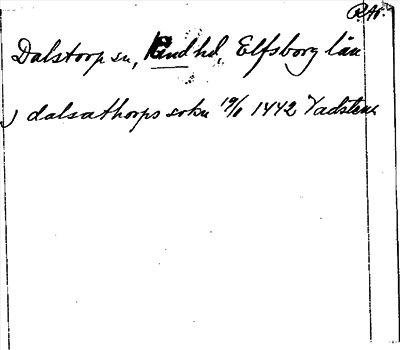 RAp.
Dalstorp sn, Kind hd, Elfsborg län
) dalsathorps sokn 19/1 1442 Vadstena